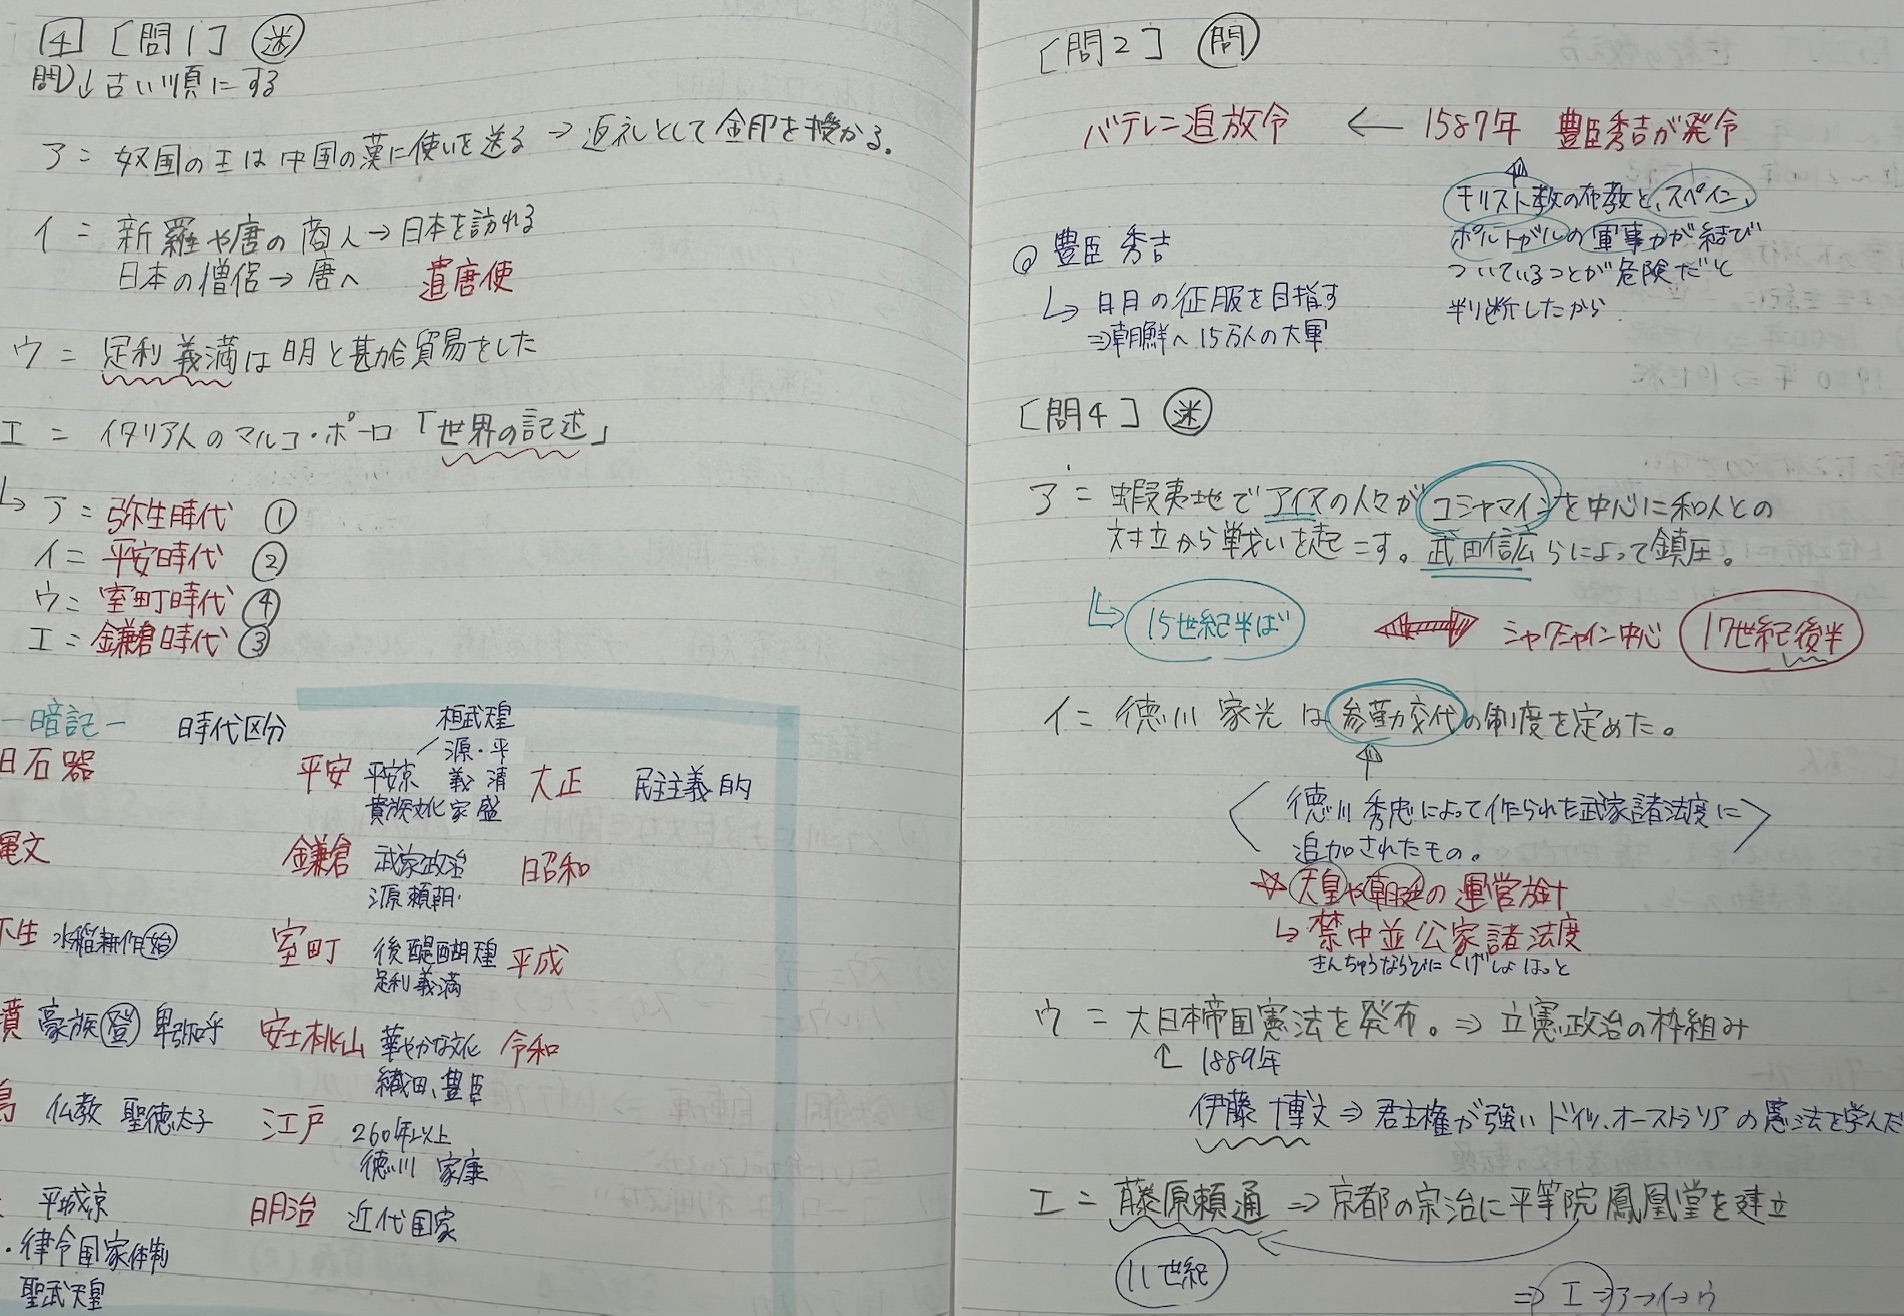 4 [問1] 迷
問)↓古い順にする
ア = 奴国の王は中国の漢に使いを送る ⇒ 返礼として金印を授かる。
イ = 新羅や唐の商人→日本を訪れる
日本の僧侶→唐へ 遣唐使
ウ = 足利義満は明と勘合貿易をした
エ = イタリア人のマルコ・ポーロ「世界の記述」
↳ ア = 弥生時代 ①
イ = 平安時代 ②
ウ = 室町時代 ④
エ = 鎌倉時代 ③
-暗記- 時代区分
旧石器
縄文
弥生 水稲耕作(始)
墳 豪族(登) 卑弥呼
鳥 仏教 聖徳太子
平城京
・律令国家体制
聖武天皇
平安 平安京 桓武天皇
貴族文化 源・平
義 清
家 盛
鎌倉 武家政治
源頼朝
室町 後醍醐天皇
足利義満
安土桃山 華やかな文化
織田、豊臣
江戸 260年以上
徳川 家康
明治 近代国家
大正 民主主義的
昭和
平成
令和
[問2] 問
バテレン追放令 ← 1587年 豊臣秀吉が発令
キリスト教の布教と、スペイン、
ポルトガルの軍事力が結び
ついていることが危険だと
判断したから
◎ 豊臣 秀吉
↳ 明の征服を目指す
⇒朝鮮へ15万人の大軍
[問4] 迷
ア = 蝦夷地でアイヌの人々がコシャマインを中心に和人との
対立から戦いを起こす。武田信広らによって鎮圧。
↳ 15世紀半ば ⇔ シャクシャイン中心 17世紀後半
イ = 徳川 家光は参勤交代の制度を定めた。
〈徳川秀忠によって作られた武家諸法度に〉
追加されたもの。
☆ 天皇や朝廷の運営方針
↳ 禁中並公家諸法度
きんちゅうならびにくげしょはっと
ウ = 大日本帝国憲法を発布。⇒ 立憲政治の枠組み
↑ 1889年
伊藤 博文 ⇒ 君主権が強いドイツ、オーストラリアの憲法を学んだ
エ = 藤原頼通 ⇒ 京都の宗治に平等院鳳凰堂を建立
11世紀
⇒ エ→ア→イ→ウ